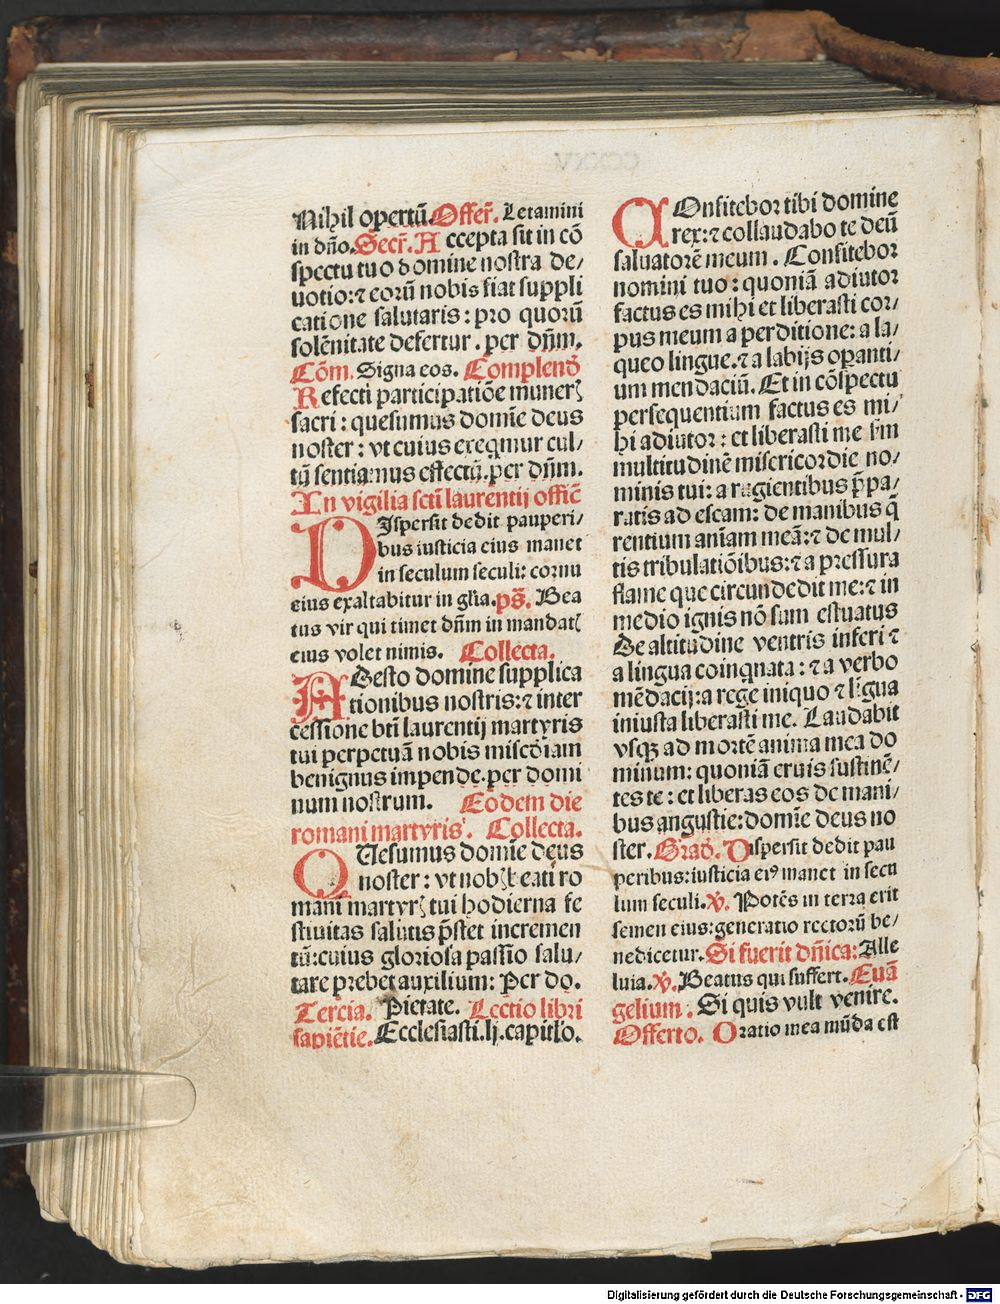 Nihil opertū. Offer̄. Letamini
in dño. Secr̄. Accepta sit in cō
spectu tuo domine nostra de/
uotio: ⁊ eorū nobis fiat suppli
catione salutaris: pro quorū
solēnitate defertur. per dñm.
Cōm. Signa eos. Complend̄
Refecti participatiōe munerꝭ
sacri: quesumus domīe deus
noster: vt cuius exeqmur cul/
tū sentiamus effectū. per dñm.
In vigilia scti laurentij offic̄
DIspersit dedit pauperi/
bus iusticia eius manet
in seculum seculi: cornu
eius exaltabitur in gl̄ia. ps̄. Bea
tus vir qui timet dñm in mandatꝭ
eius volet nimis. Collecta.
ADesto domine supplica
tionibus nostris: ⁊ inter
cessione bti laurentij martyris
tui perpetuā nobis miscōiam
benignus impende. per domi
num nostrum. Eodem die
romani martyris. Collecta.
QUesumus domīe deus
noster: vt nobꝭ beati ro
mani martyrꝭ tui hodierna fe
stiuitas salutis p̄stet incremen
tū: cuius gloriosa passio salu/
tare prebet auxilium: Per do.
Tercia. Pietate. Lectio libri
sapiētie. Ecclesiasti. lj. capitl̄o.
COnfitebor tibi domine
rex: ⁊ collaudabo te deū
saluatorē meum. Confitebor
nomini tuo: quoniā adiutor
factus es mihi et liberasti cor/
pus meum a perditione: a la/
queo lingue. ⁊ a labijs oꝑanti/
um mendaciū. Et in cōspectu
persequentium factus es mi/
hi adiutor: et liberasti me s̄m
multitudinē misericordie no/
minis tui: a rugientibus p̄pa/
ratis ad escam: de manibus q̄
rentium aniam meā: ⁊ de mul/
tis tribulatiōibus: ⁊ a pressura
flame que circundedit me: ⁊ in
medio ignis nō sum estuatus
De altitudine ventris inferi ⁊
a lingua coinqnata: ⁊ a verbo
mēdacij: a rege iniquo ⁊ līgua
iniusta liberasti me. Laudabit
vsqꝫ ad mortē anima mea do
minum: quoniā eruis sustinē/
tes te: et liberas eos de mani/
bus angustie: domīe deus no
ster. Grad̄. Dispersit dedit pau
peribus: iusticia eiꝰ manet in secu
lum seculi. ℣. Potēs in terra erit
semen eius: generatio rectorū be/
nedicetur. Si fuerit dñica: Alle
luia. ℣. Beatus qui suffert. Euā
gelium. Si quis vult venire.
Offerto. Oratio mea mūda est
Digitalisierung gefördert durch die Deutsche Forschungsgemeinschaft - DFG